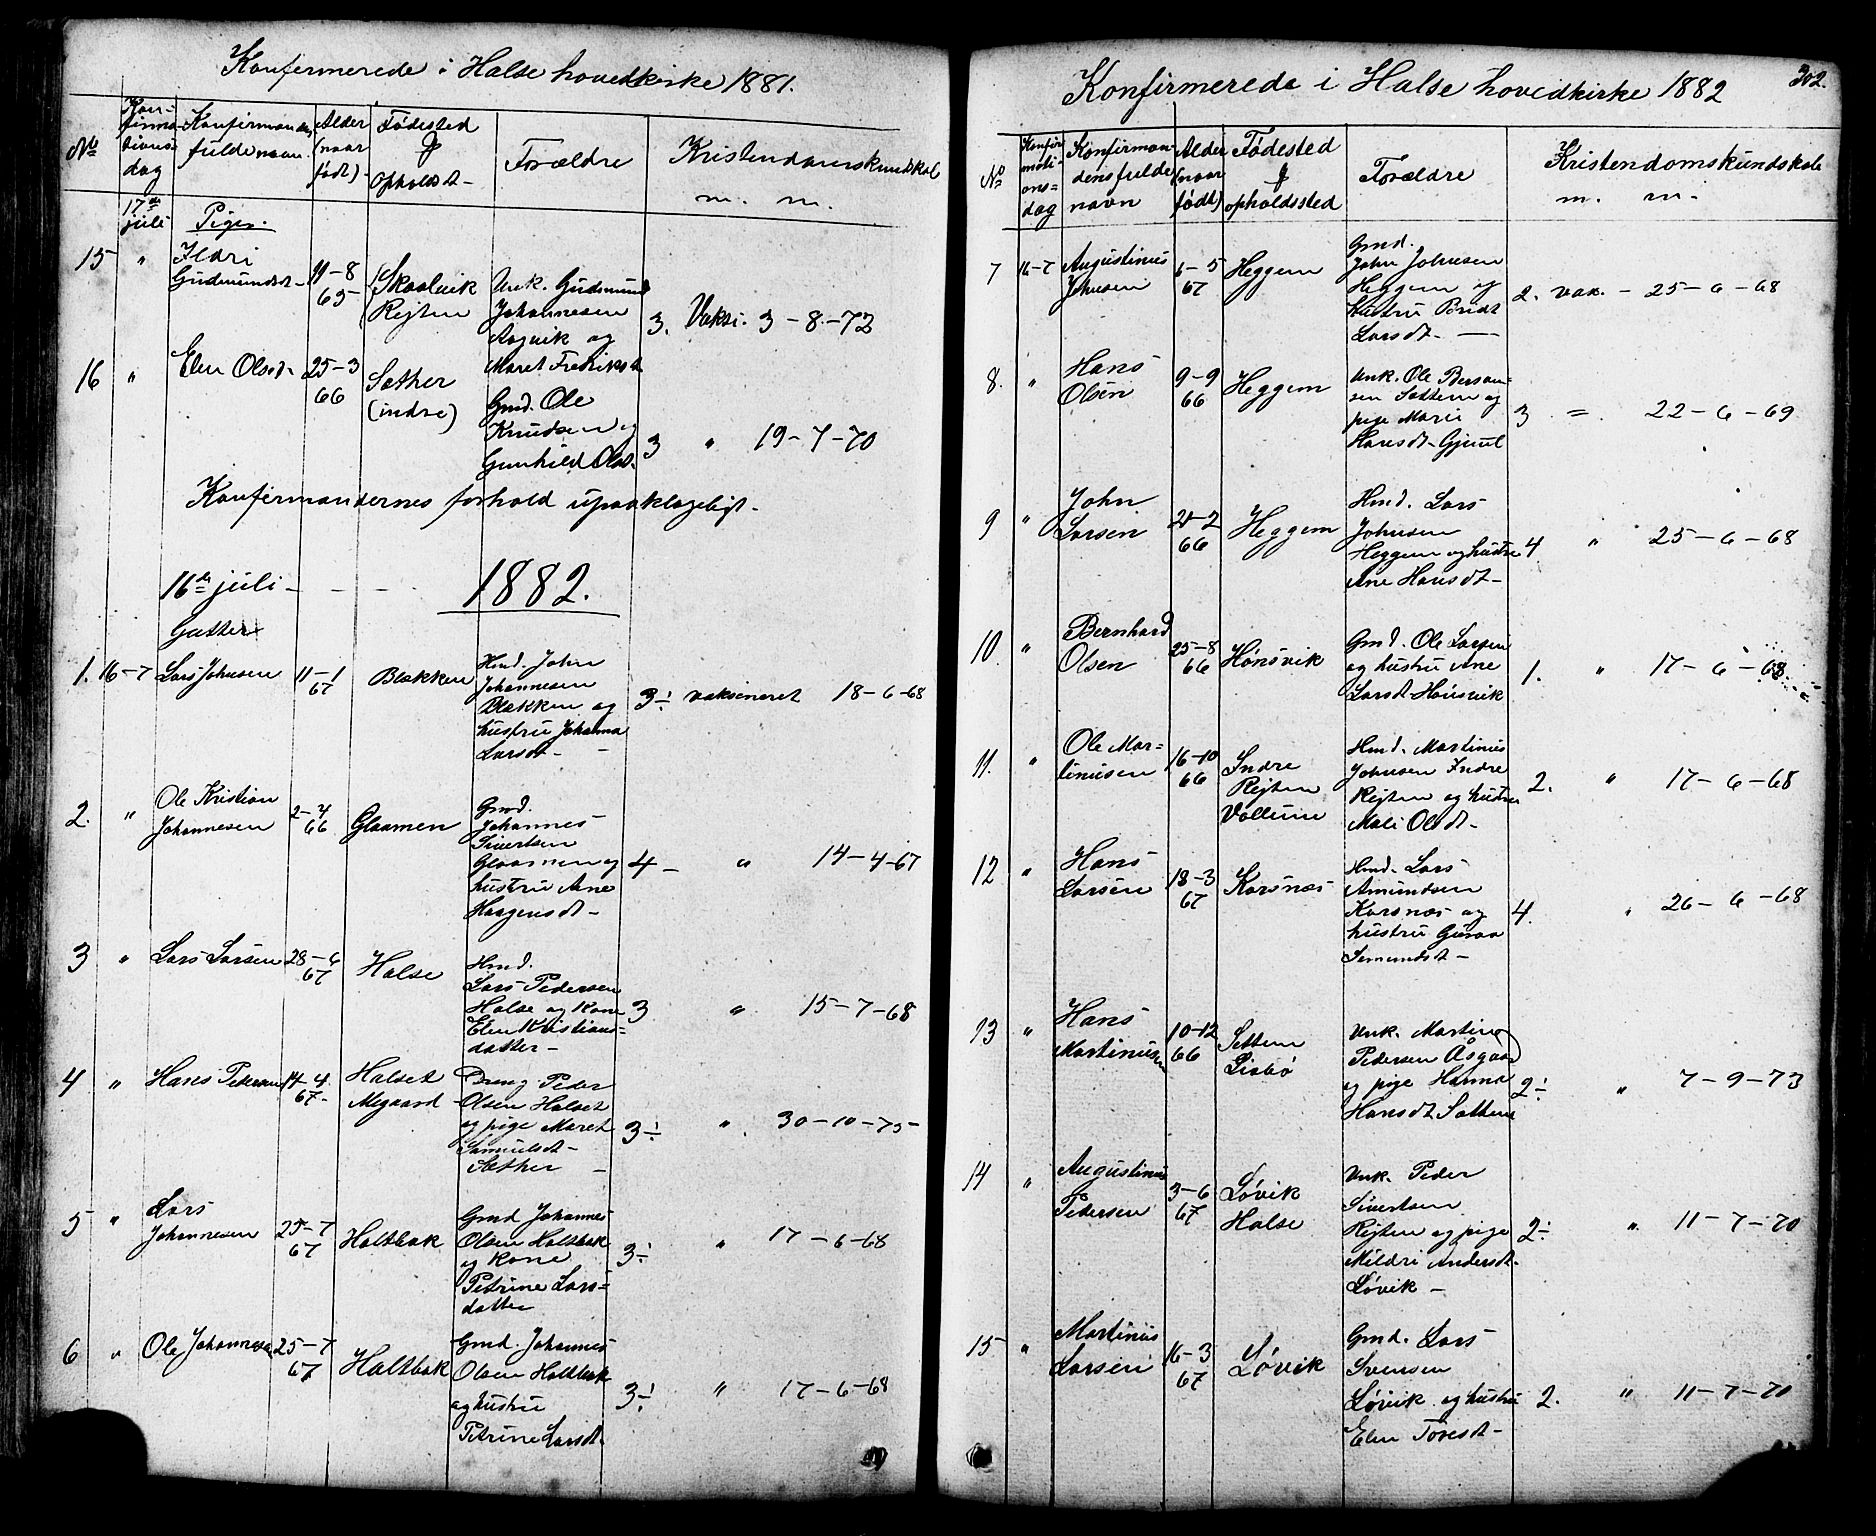 Konfirmerede i Halse hovedkirke 1881.
No
Kon-
firma-
tions-
dag
Konfirmandens
fulde navn.
Alder
(naar
født)
Fødested
&
opholdst-
Forældre
Kristendomskundskab
m. m.
17de
juli
Piger.
15 " Ildri
Gudmundsdt-
11-8
65
Skaalvik
Rejten
Unk. Gudmund
Johannesen
Aagvik og
Maret Fredriksdt
3. Vaksi. 3-8-72
16 " Elen Olsdt-
25-3
66
Sæther
(indre)
Gmd. Ole
Knudsen og
Gunhild Olsd.
3 " 19-7-70
Konfirmandernes forhold upaaklageligt-
16de juli - - - 1882.
Gutter
1. 16-7 Lars Johnsen
11-1
67
Blakken
Hmd. John
Johannesen
Blakken og
hustru Johanna
Larsdt-
3÷ vaksineret 18-6-68
2. " Ole Kristian
Johannesen
2-4
66
Glaamen
Gmd.
Johannes
Sivertsen
Glaamen og
hustru Ane
Haagensdt-
4- " 14-4-67
3 " Lars Larsen
28-6
67
Halse
Hmd.
Lars Pedersen
Halse og kone
Elen Kristians=
datter-
3 " 15-7-68
4 " Hans Pedersen
14-4
67-
Halset
Megaard
Dreng Peder
Olsen Halset
og pige Maret
Samuelsdt-
Sæther -
3÷ " 30-10-75-
5 " Lars
Johannesen
25-7
67
Holtbak
Gmd Johannes
Olsen Holtbak
og kone
Petrine Lars=
datter
3÷ " 17-6-68
6 " Ole Johannesen
25-7
67
Holtbak
Gmd. Johannes
Olsen Holtbak
og hustru
Petrine Larsdt.
3÷ " 17-6-68
Konfirmerede i Halse hovedkirke 1882
302.
No
Konfir
mati-
ons=
dag
Konfirman-
dens fulde
navn
Alder
(naar
født)
Fødested
&
opholdssted
Forældre
Kristendomskundskab
m. m.
7 16-7 Augustinus
Johnsen
6-5
67
Heggem
Gmd.
John Johnsen
Heggem og
hustru Beridt
Larsdt-
2. vak. - 25-6-68
8. " Hans
Olsen
9-9
66
Heggem
Unk. Ole
Sættem og
pige Marit
Hansdt-
3 = . 22-6-69
9 " John
Larsen
21-2
66
Heggem
Hmd. Lars
Johnsen
Heggem og hustru
Ane Hansdt-
4 " 25-6-68
10. " Bernhard
Olsen
25-8
66
Hønsvik
Gmd. Ole Larsen
og hustru Ane
Larsdt Hønsvik
1. " 17-6-68
11. " Ole Mar=
tinusen
16-10
66
Indre
Rejten
Vollum
Hmd. Martinus
Johnsen Indre
Rejten og hustru
Mali Olsdt-
2. " 17-6-68
12 " Hans
Larsen
18-3
67
Korsnæs
Hmd. Lars
Amundsen
Korsnæs og
hustru Guroa
Semundsdt-
4. " 26-6-68
13 " Hans
Martinusen
10-12
66
Settem
Lisbø
Unk. Martinus
Pedersen
og pige Hanna
Hansdt Sættem
2÷ " 7-9-73
14 " Augustinus
Pedersen
3-6
67
Løvik
Halse
Unk. Peder
Sivertsen
Rejten og pige
Mildri Andersdt-
Løvik -
2÷ " 11-7-70
15 " Martinus
Larsen
16-3
67
Løvik
Gmd. Lars
Svensen
Løvik og hustru
Elen Toresdt-
2. " 11-7-70